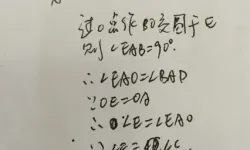 过O点作BO交圆于E
则∠EAB=90°.
∴∠EAO=∠BAD
∵OE=OA
∴∠E=∠EAO